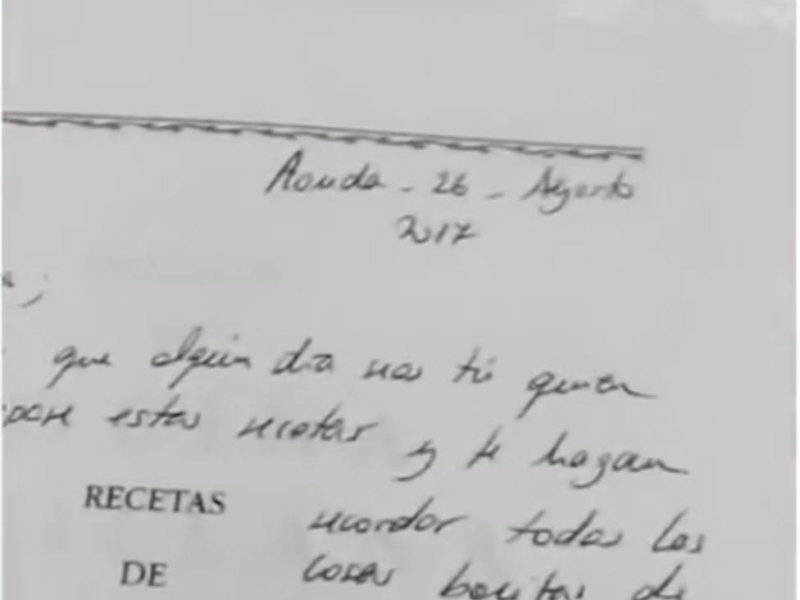 Aouda - 26 - Agosto
2017
que algún día seas tú quien
estas recetas y te hagan
RECETAS recordar todas las
DE cosas bonitas de